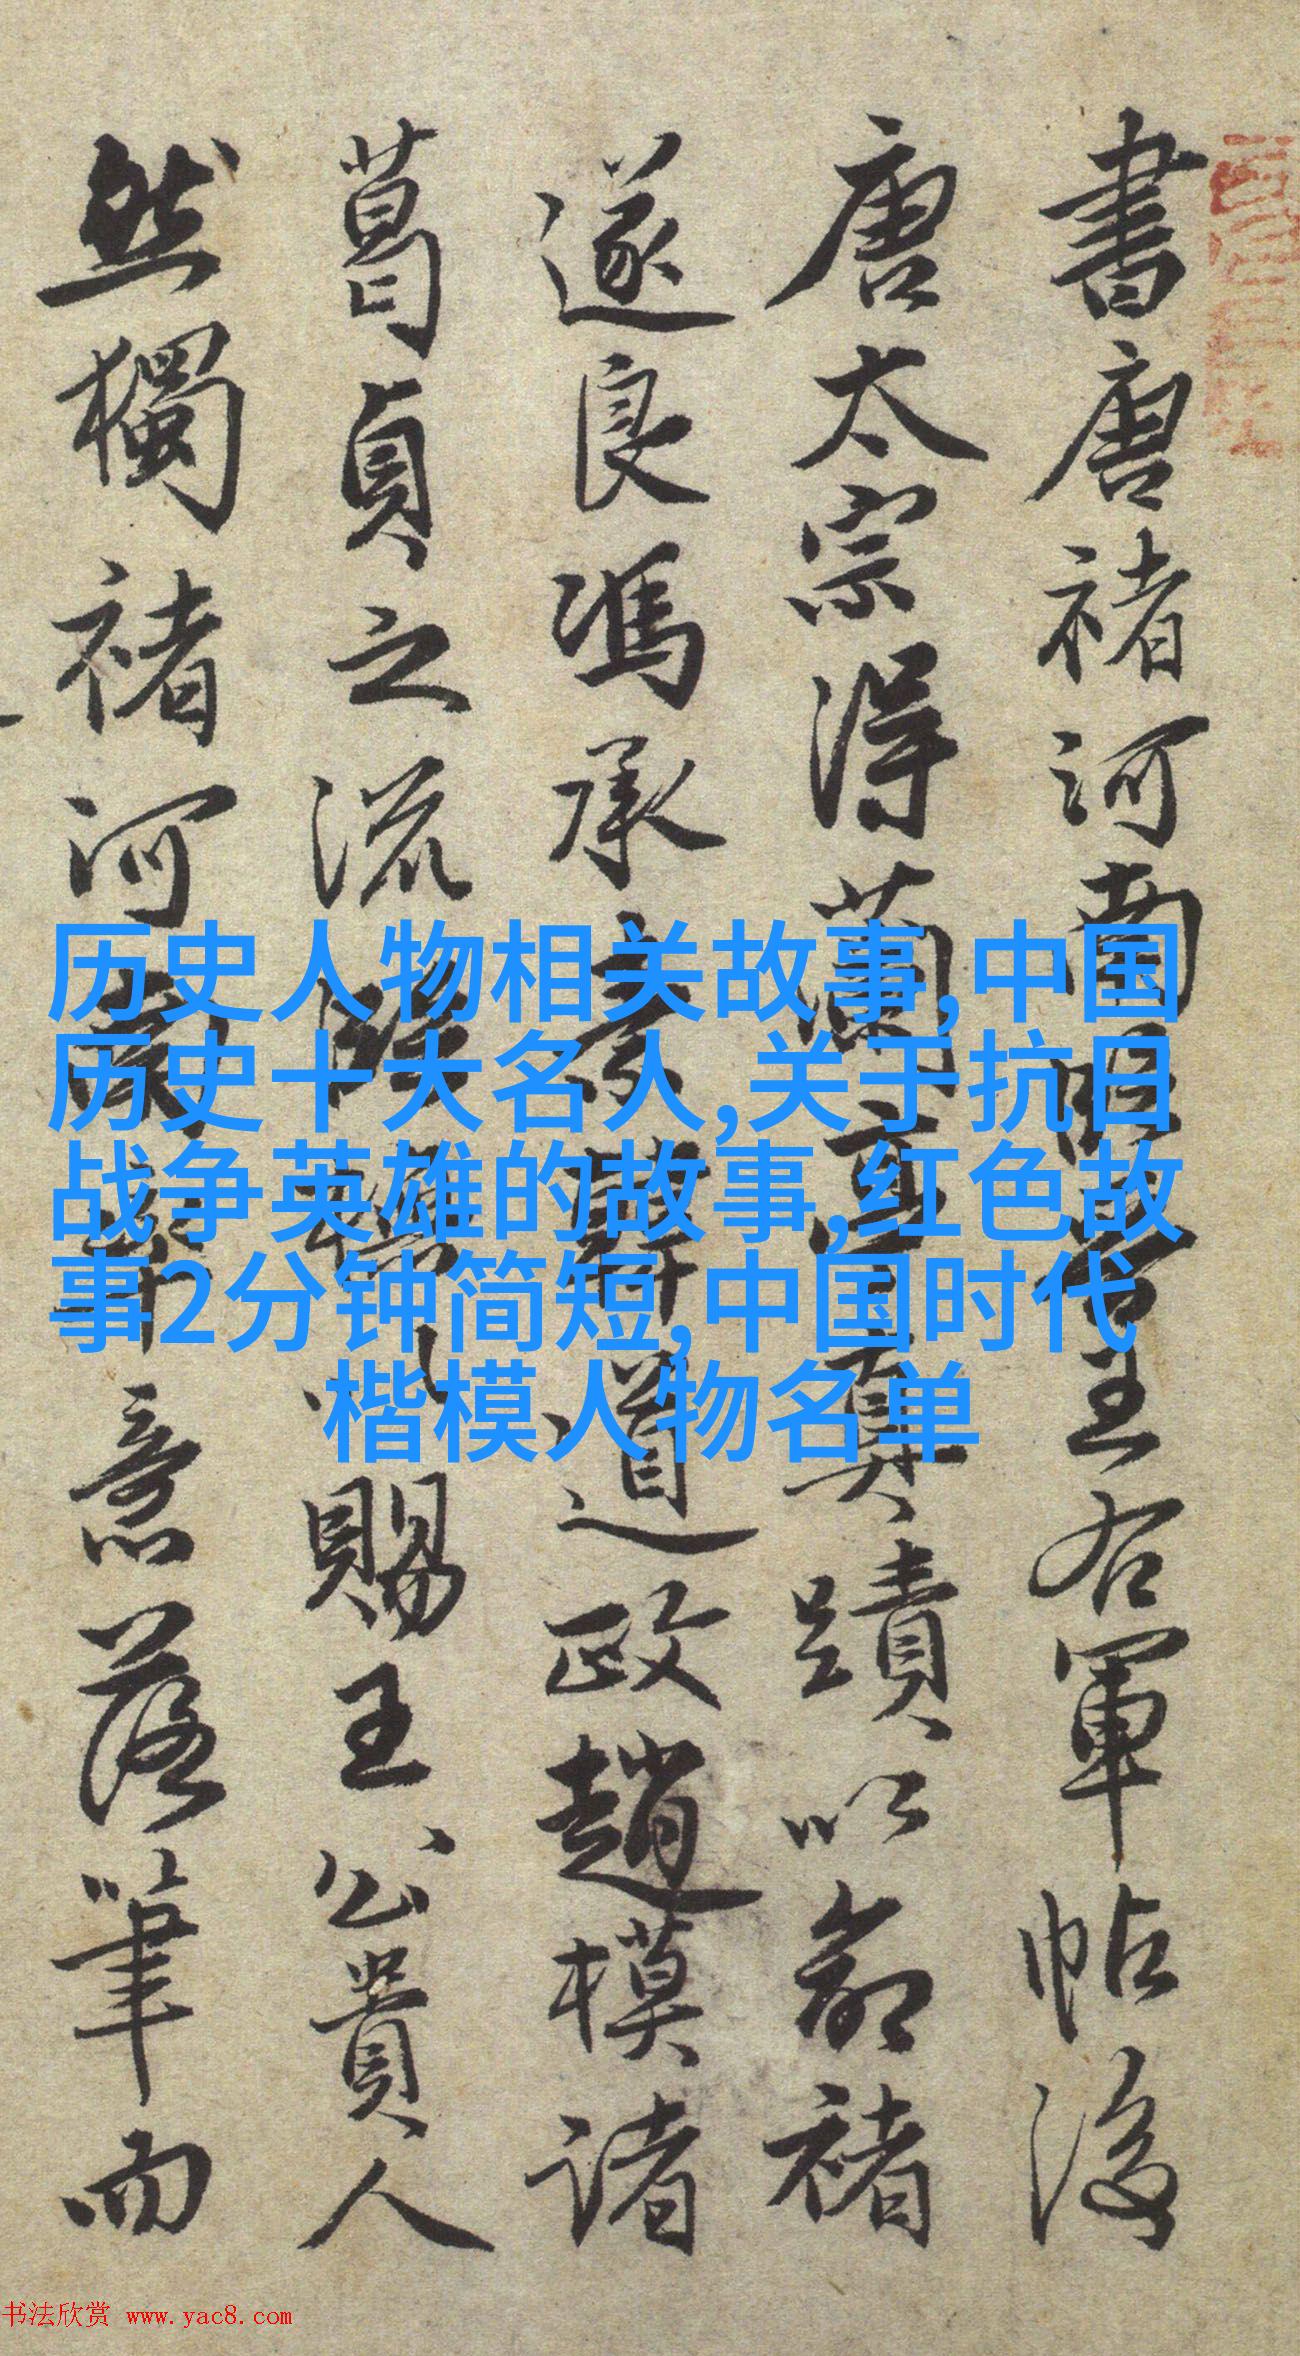 書唐褚河南臨晉王右軍帖後
唐太宗得蘭亭真蹟以命褚
遂良馮承素韓道政趙模諸
葛貞之流以賜王公貴人
然獨褚河南意落筆而
历史人物相关故事,中国
历史十大名人,关于抗日
战争英雄的故事,红色故
事2分钟简短,中国时代
楷模人物名单
书法欣赏 www.yac8.com